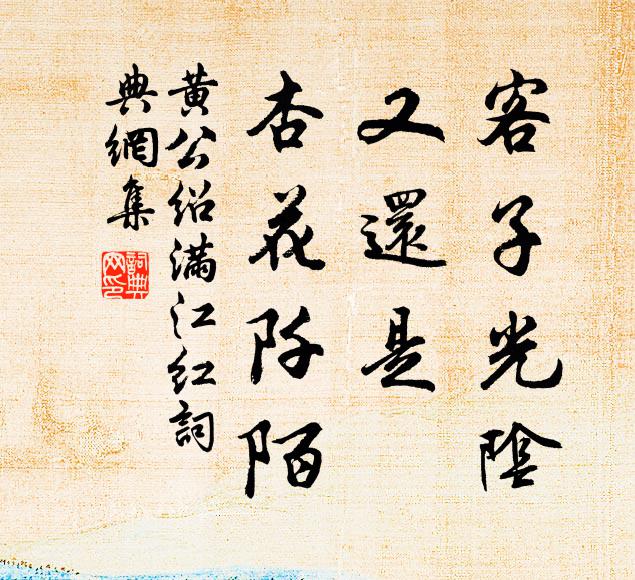 客子光陰
又還是
杏花阡陌
黃公紹滿江紅詞
典網集
詞典網印